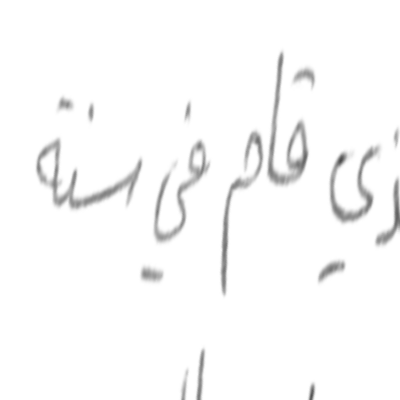 قام في سنة